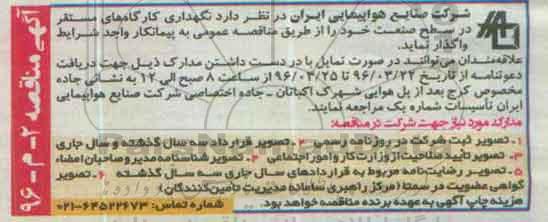 آگهی مناقصه ۲-م-۹۶
شرکت صنایع هواپیمایی ایران در نظر دارد نگهداری کارگاههای مستقر
در سطح صنعت خود را از طریق مناقصه عمومی به پیمانکار واجد شرایط
واگذار نماید.
علاقه‌مندان می‌توانند در صورت تمایل با در دست داشتن مدارک ذیل جهت دریافت
دعوتنامه از تاریخ ۹۶/۰۳/۲۲ تا ۹۶/۰۳/۲۵ از ساعت ۸ صبح الی ۱۲ به نشانی جاده
مخصوص کرج بعد از پل هوایی شهرک اکباتان - جاده اختصاصی شرکت صنایع هواپیمایی
ایران تأسیسات شماره یک مراجعه نمایند.
مدارک مورد نیاز جهت شرکت در مناقصه:
۱- تصویر ثبت شرکت در روزنامه رسمی ۲- تصویر قرارداد سه سال گذشته و سال جاری
۳- تصویر تأیید صلاحیت از وزارت کار و امور اجتماعی ۴- تصویر شناسنامه مدیر و صاحبان امضاء
۵- تصویر رضایت‌نامه مربوط به قراردادهای سال جاری سه سال گذشته ۶- تصویر
گواهی عضویت در سمتا (مرکز راهبری سامانه مدیریت تأمین‌کنندگان)
هزینه چاپ آگهی به عهده برنده مناقصه خواهد بود. شماره تماس: ۶۴۵۲۲۶۷۳-۰۲۱